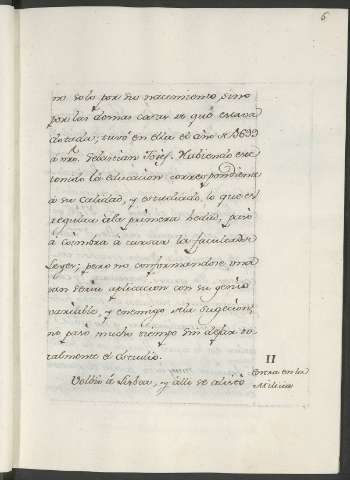 6
no solo por su nacimiento sino
por las demas cosas de que estava
dotada; tuvó en ella el año de 1699
á nro. Sebastian Josef. Habiendo este
tenido la educacion correspondiente
á su calidad, y estudiado lo que es
regular ála primera hedad, pasó
á Coimbra á cursar la facultad de
Leyes; pero no conformandose una
tan séria aplicacion con su genio
variable, y enemigo dela sugecion,
no pasó mucho tiempo sin dejar to-
talmente el Estudio.
II
Entra en la
Milicia
Volbió á Lisboa, y allí se alistó